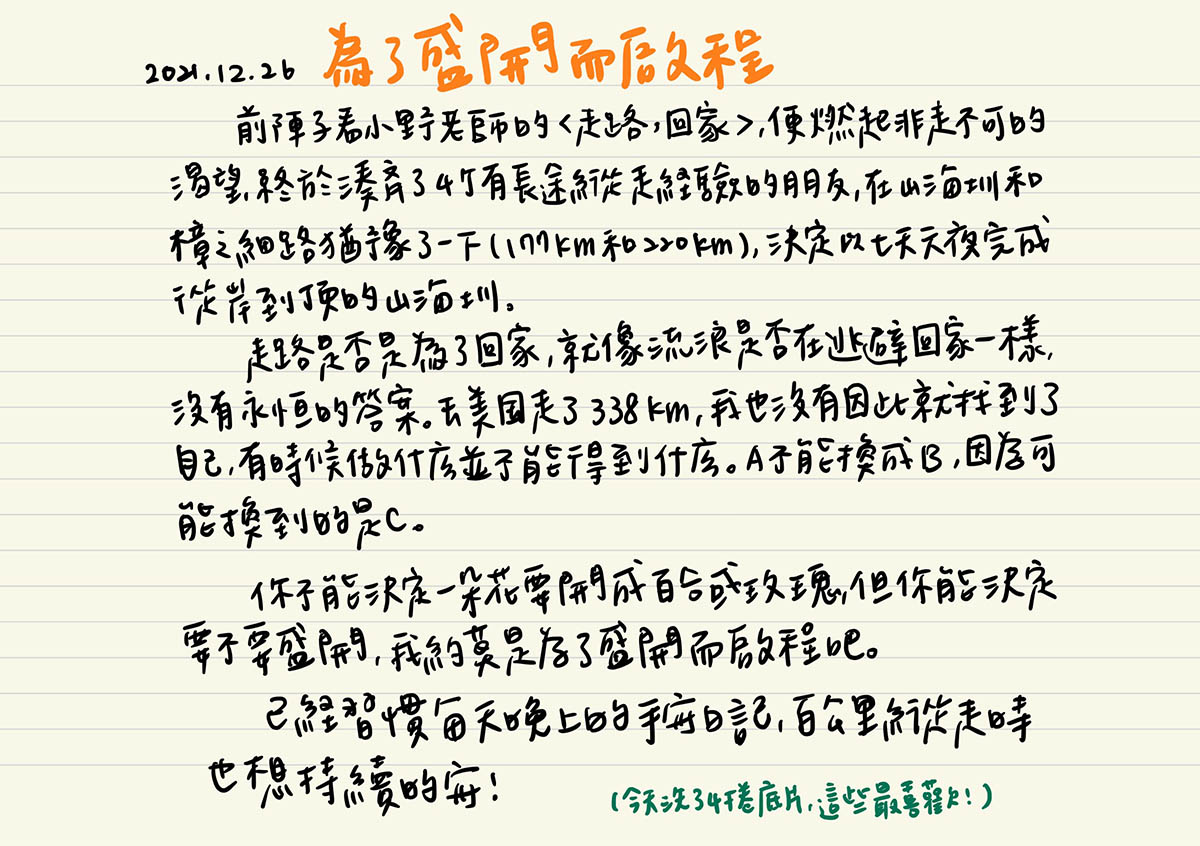 2021.12.26 為了盛開而啟程
前陣子看小野老師的<走路,回家>,便燃起非走不可的
渴望,終於湊齊了4個有長途縱走經驗的朋友,在山海圳和
樟之細路猶豫了一下(177km和220km),決定以七天六夜完成
從岸到頂的山海圳。
走路是否是為了回家,就像流浪是否在逃避回家一樣,
沒有永恒的答案。去美国走了338km,我也沒有因此就找到了
自己,有時候做什麼並不能得到什麼。A不能換成B,因為可
能換到的是C。
你不能決定一朵花要開成百合或玫瑰,但你能決定
要不要盛開,我約莫是為了盛開而啟程吧。
已經習慣每天晚上的手写日記,百公里縱走時
也想持續的写!
(今天洗了4捲底片,這些最喜歡!)